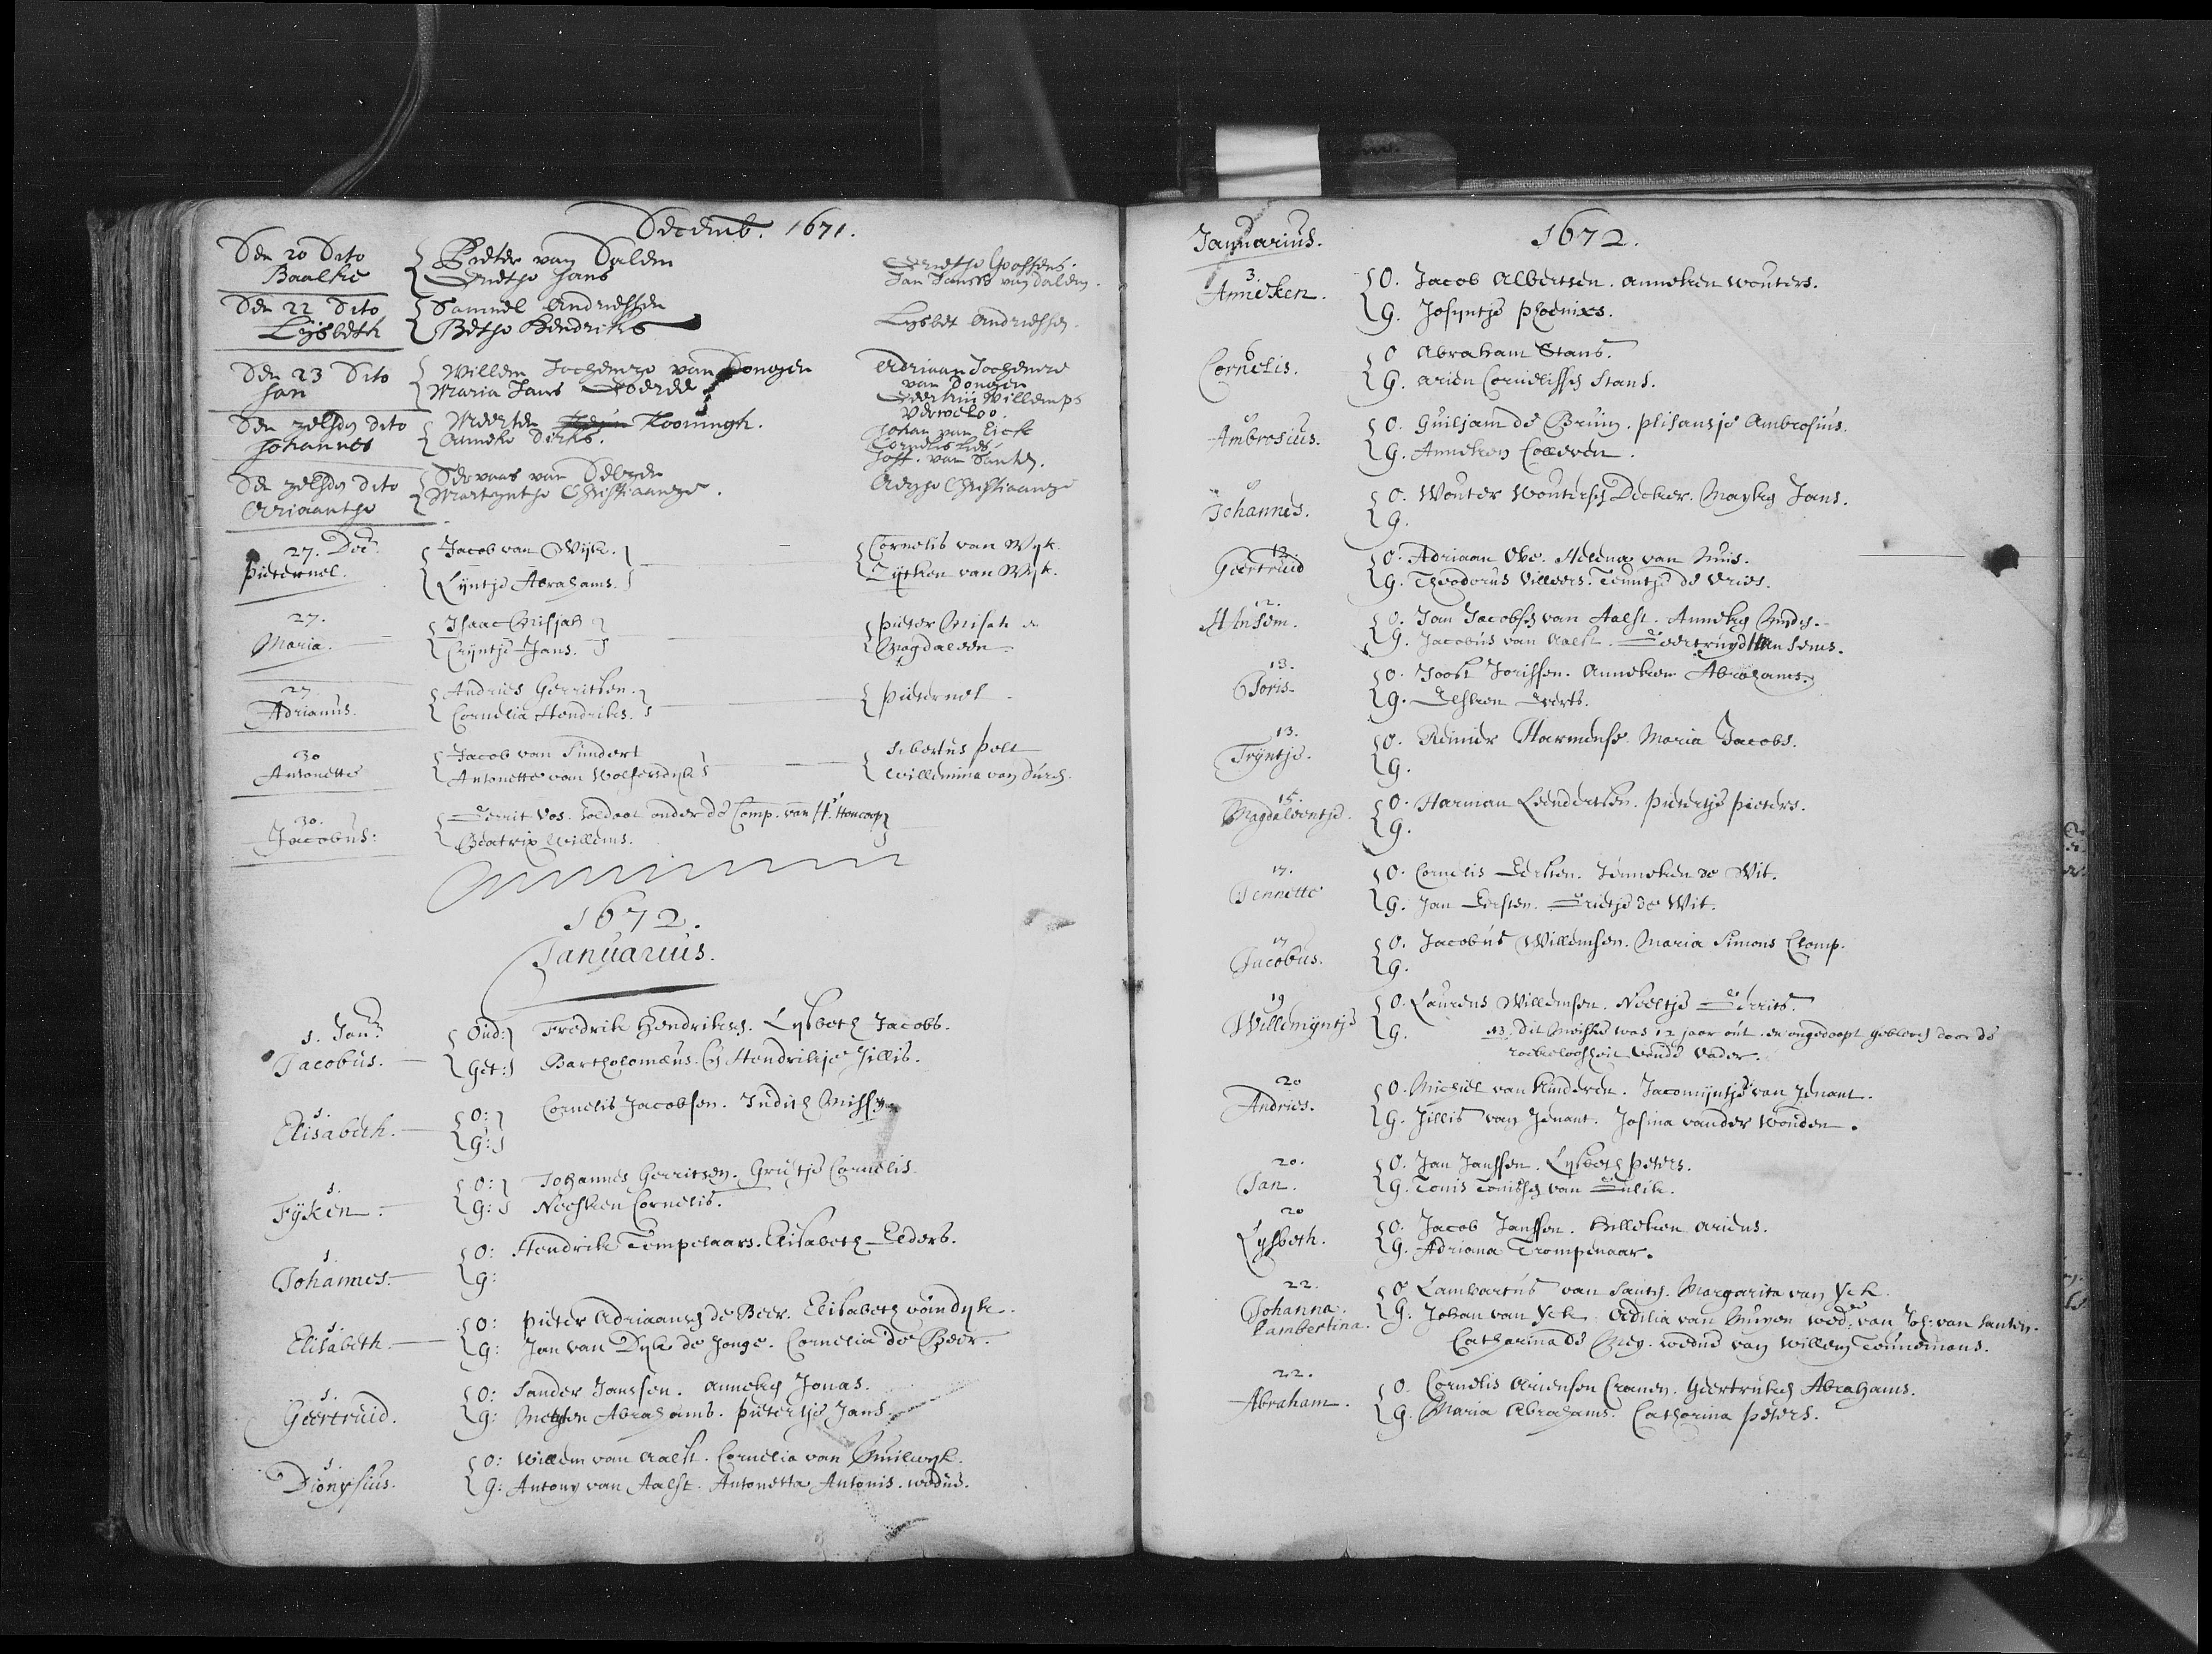 Decemb. 1671.
Den 20 Dito
Baalke
Pieter van Dalen
Grietje Hans
Grietje Goossens.
Jan Janss van Dalen.
Den 22 Dito
Lijsbeth
Samuel Andriessen
Betje Hendriks
Lysbet Andriessen
Den 23 Dito
Jan
Willem Jochemze van Dongen
Maria Jans
Adriaan Jochemze
van Dongen
Willemps
Verweloo.
Den zelfden dito
Johannes
Meerten Kooningh.
Anneke Dirks.
Johan van Eick
Cornelis
Joff. van Santen.
Den zelfden dito
Ariaantje
Servaas van
Martyntje Christiaanze.
Adryse Christiaanze
27. Dec.
Pieternel.
Jacob van Wijk.
Lijntje Abrahams.
Cornelis van Wyk.
Lijtken van Wyk.
27.
Maria.
Isaac Misjah
Trijntje Jans.
Pieter Misah en
Magdaleen
27.
Adrianus.
Andries Gerritsen.
Cornelia Hendriks.
Pieternel
30
Antonette
Jacob van Sundert
Antonette van Wolfersdyk
Sibertus Pelt
Willemina van
30.
Jacobus:
Gerrit Vos. soldaat onder de Comp. van Hr. Honcoop
Beatrix Willems.
1672.
Januarius.
1. Janr.
Jacobus.
Oud: Fredrik Hendriksen. Lysbeth Jacobs.
Get: Bartholomæus. en Hendrikje Jillis.
1.
Elisabeth.
O: Cornelis Jacobsen. Judith
G:
1.
Fijken.
O: Johannes Gerritsen. Grietje Cornelis.
G: Neesken Cornelis.
1.
Johannes.
O: Hendrik Tempelaars. Elisabeth Eeders.
G:
1.
Elisabeth.
O: Pieter Adriaansen de Beer. Elisabeth van Dyk.
G: Jan van Dyk de Jonge. Cornelia de Beer.
1.
Geertruid.
O: Sander Janssen. Anneken Jonas.
G: Abrahams. Pietertje Jans
1.
Dionysius.
O: Willem van Aalst. Cornelia van Muilwyk.
G: Antony van Aalst. Antonetta Antonis. wedue.
Januarius.
1672.
3.
Anneken.
O. Jacob Albertsen. Anneken Wouters.
G. Josyntje Phoenixs.
6
Cornelis.
O Abraham Stans.
G. Arien Cornelissen Stans.
Ambrosius.
O. Guiljam de Bruyn. Ambrosius.
G. Anneken
Johannes.
O. Wouter Woutersen Decker. Mayken Jans.
G.
12.
Geertruid
O. Adriaan Obe. Helena van Nuis.
G. Theodorus Villeers. Teuntje de Vries.
12.
Ansem.
O. Jan Jacobsen van Aalst. Anneken
G. Jacobus van Aalst. Geertruyd Ansems.
13.
Joris.
O. Joost Jorissen. Anneken Abrahams.
G. Elsken Everts.
13.
Tryntje.
O. Reinier Harmense. Maria Jacobs.
G.
15.
Magdaleentje.
O. Harman Leendertsen. Pietertje Pieters.
G.
17.
Jennette
O. Cornelis Gerssen. Jenneken de Wit.
G. Jan Gerssen. Grietje de Wit.
17
Jacobus.
O. Jacobus Willemsen. Maria Simons Clomp.
G.
19
Willemijntje
O. Laurens Willemsen. Neeltje Gerrits.
G. NB. Dit Meiske was 12 jaar out. en ongedoopt gebleven door de
roekeloosheit vande Vader.
20
Andries.
O. Michiel van Kinderen. Jacomijntje van Jenant.
G. Jillis van Jenant. Josina vander Wouden.
20.
Jan.
O. Jan Janssen. Lysbeth Peters.
G. Tonis Tonissen van Gulik.
20
Lysbeth.
O. Jacob Janssen. Hilleken Ariens.
G. Adriana Trompenaar.
22.
Johanna.
Lambertina.
O Lambartus van Santen. Margarita van Yck.
G. Johan van Yck. Odilia van Nuyen wed: van Joh: van Santen.
Catharina de Mey. wedue van Willem Teunemans.
22.
Abraham.
O. Cornelis Ariensen Cramen. Geertruken Abrahams.
G. Maria Abrahams. Catharina Peters.